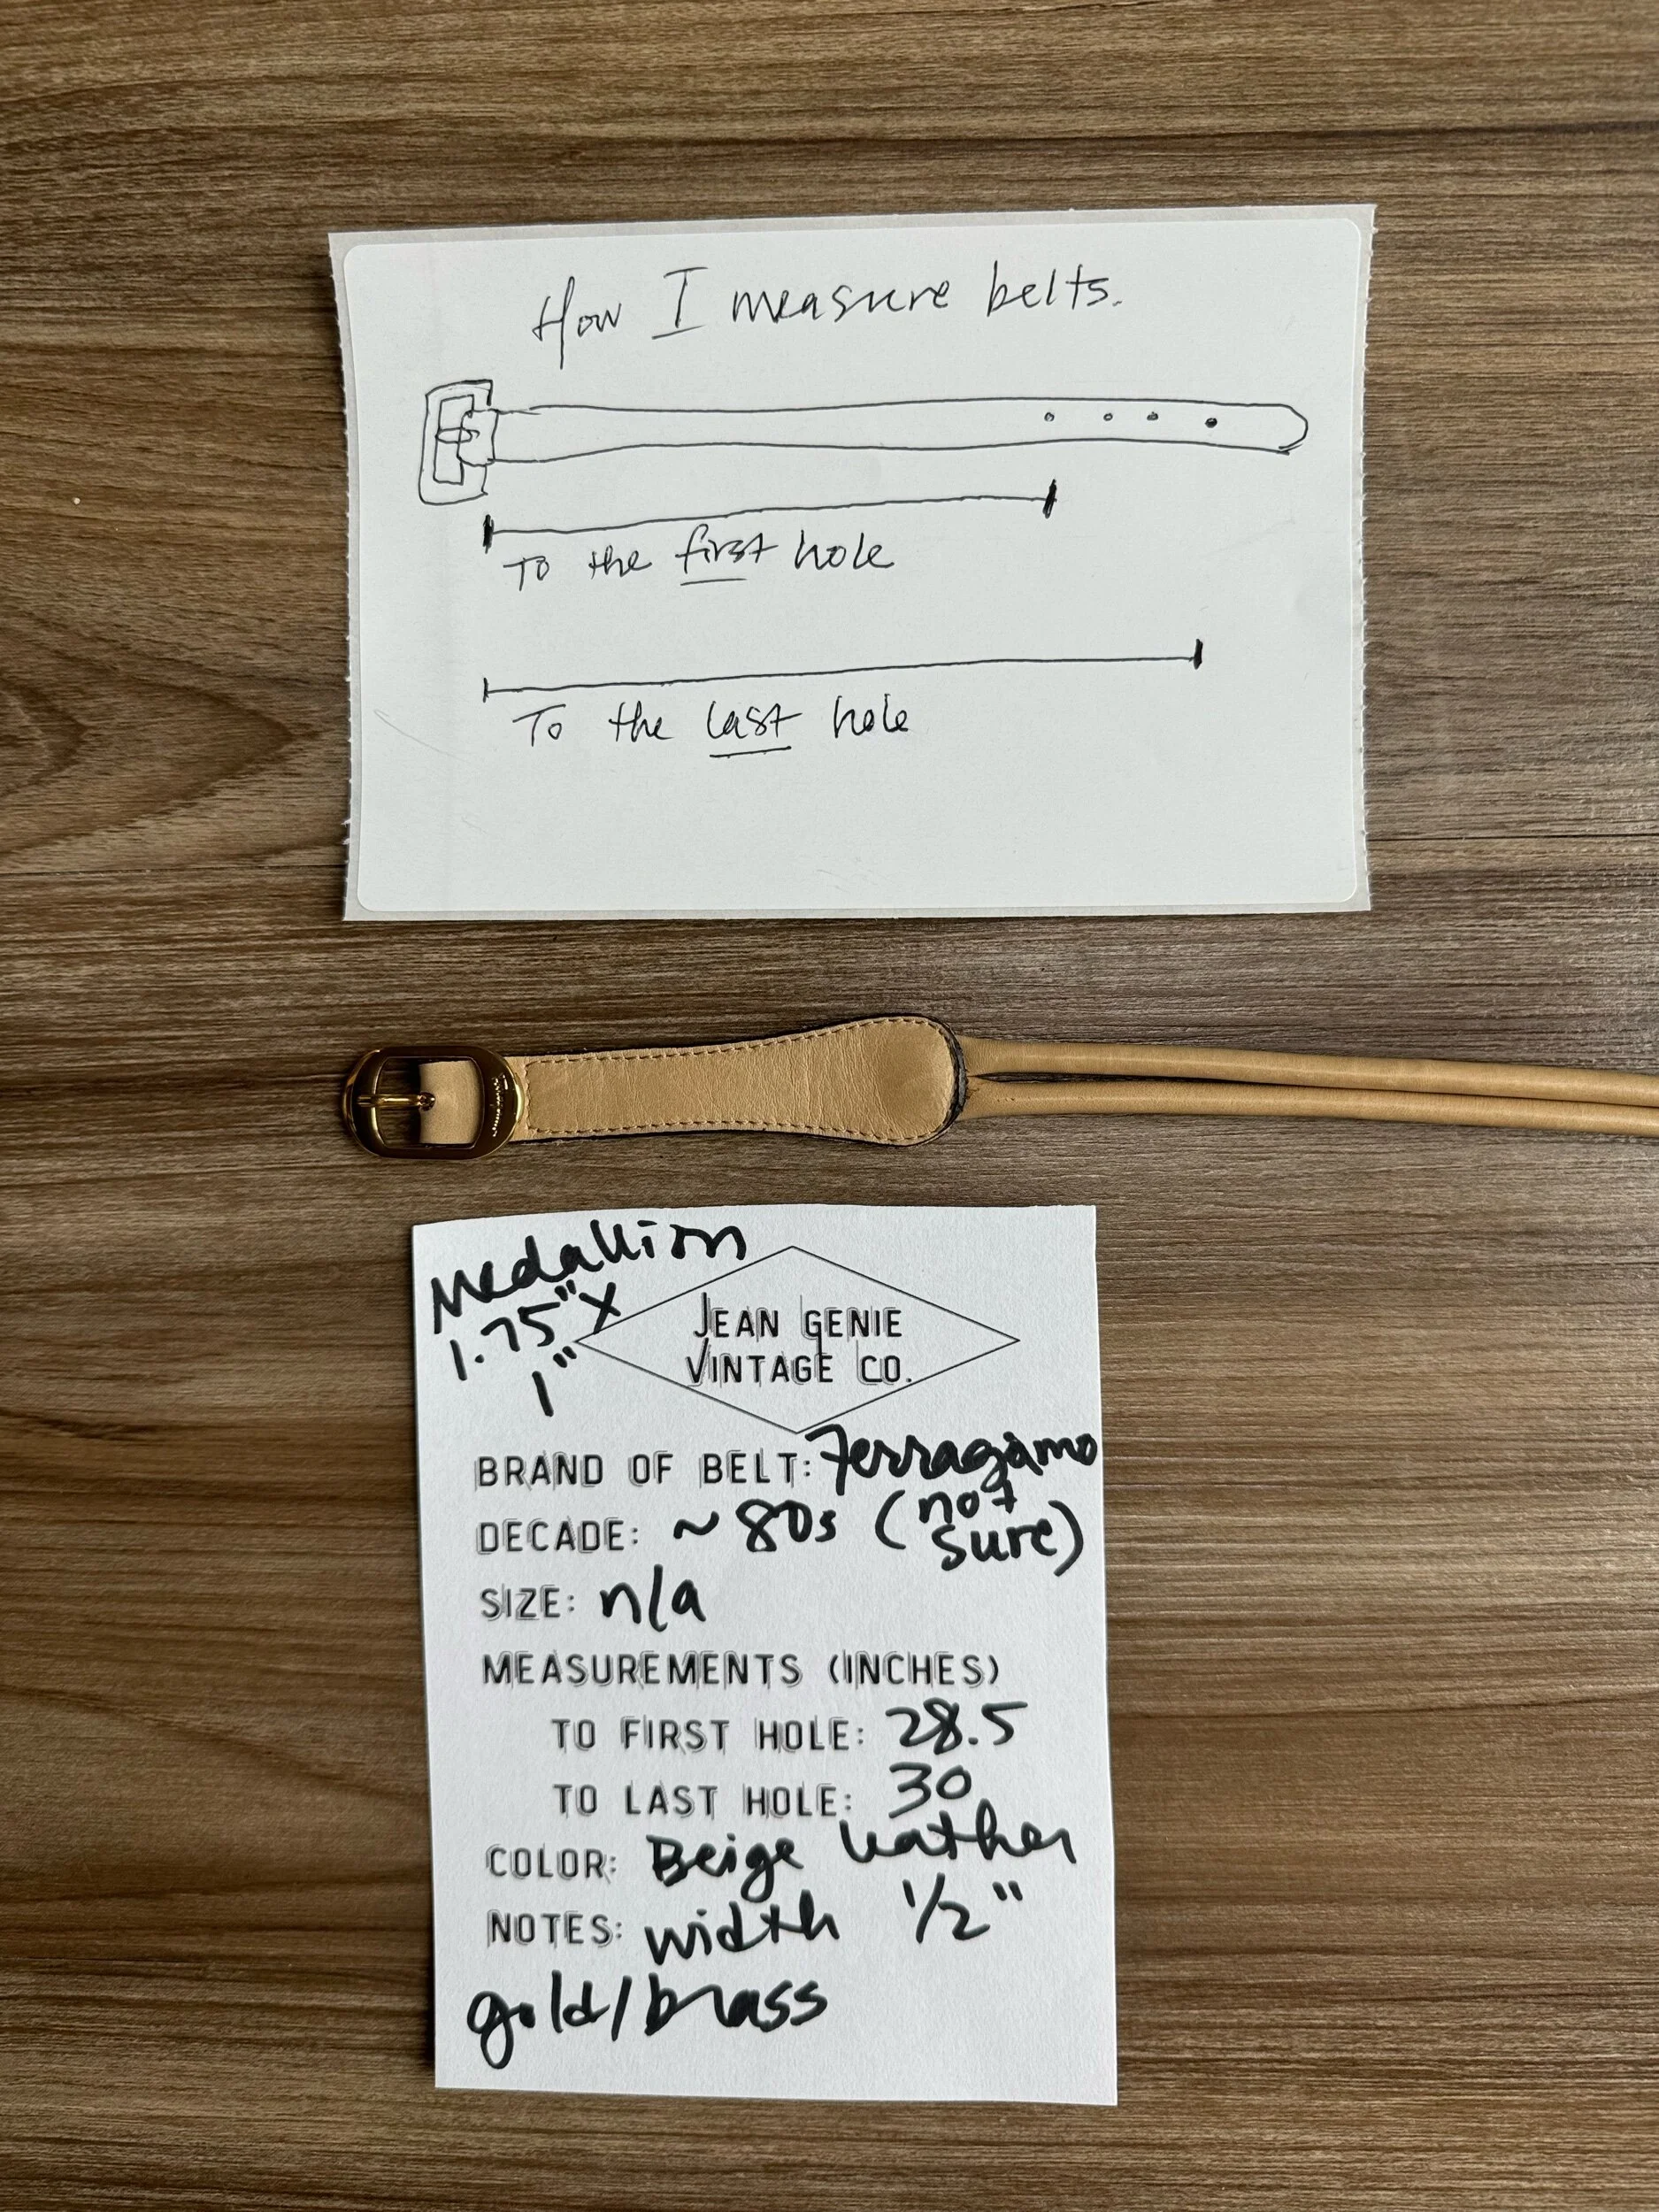 How I measure belts.
To the first hole
To the last hole
Medallion
1.75" X
1"
JEAN GENIE
VINTAGE CO.
BRAND OF BELT: Ferragamo
DECADE: ~ 80s (not sure)
SIZE: n/a
MEASUREMENTS (INCHES)
TO FIRST HOLE: 28.5
TO LAST HOLE: 30
COLOR: Beige leather
NOTES: width 1/2"
gold/brass